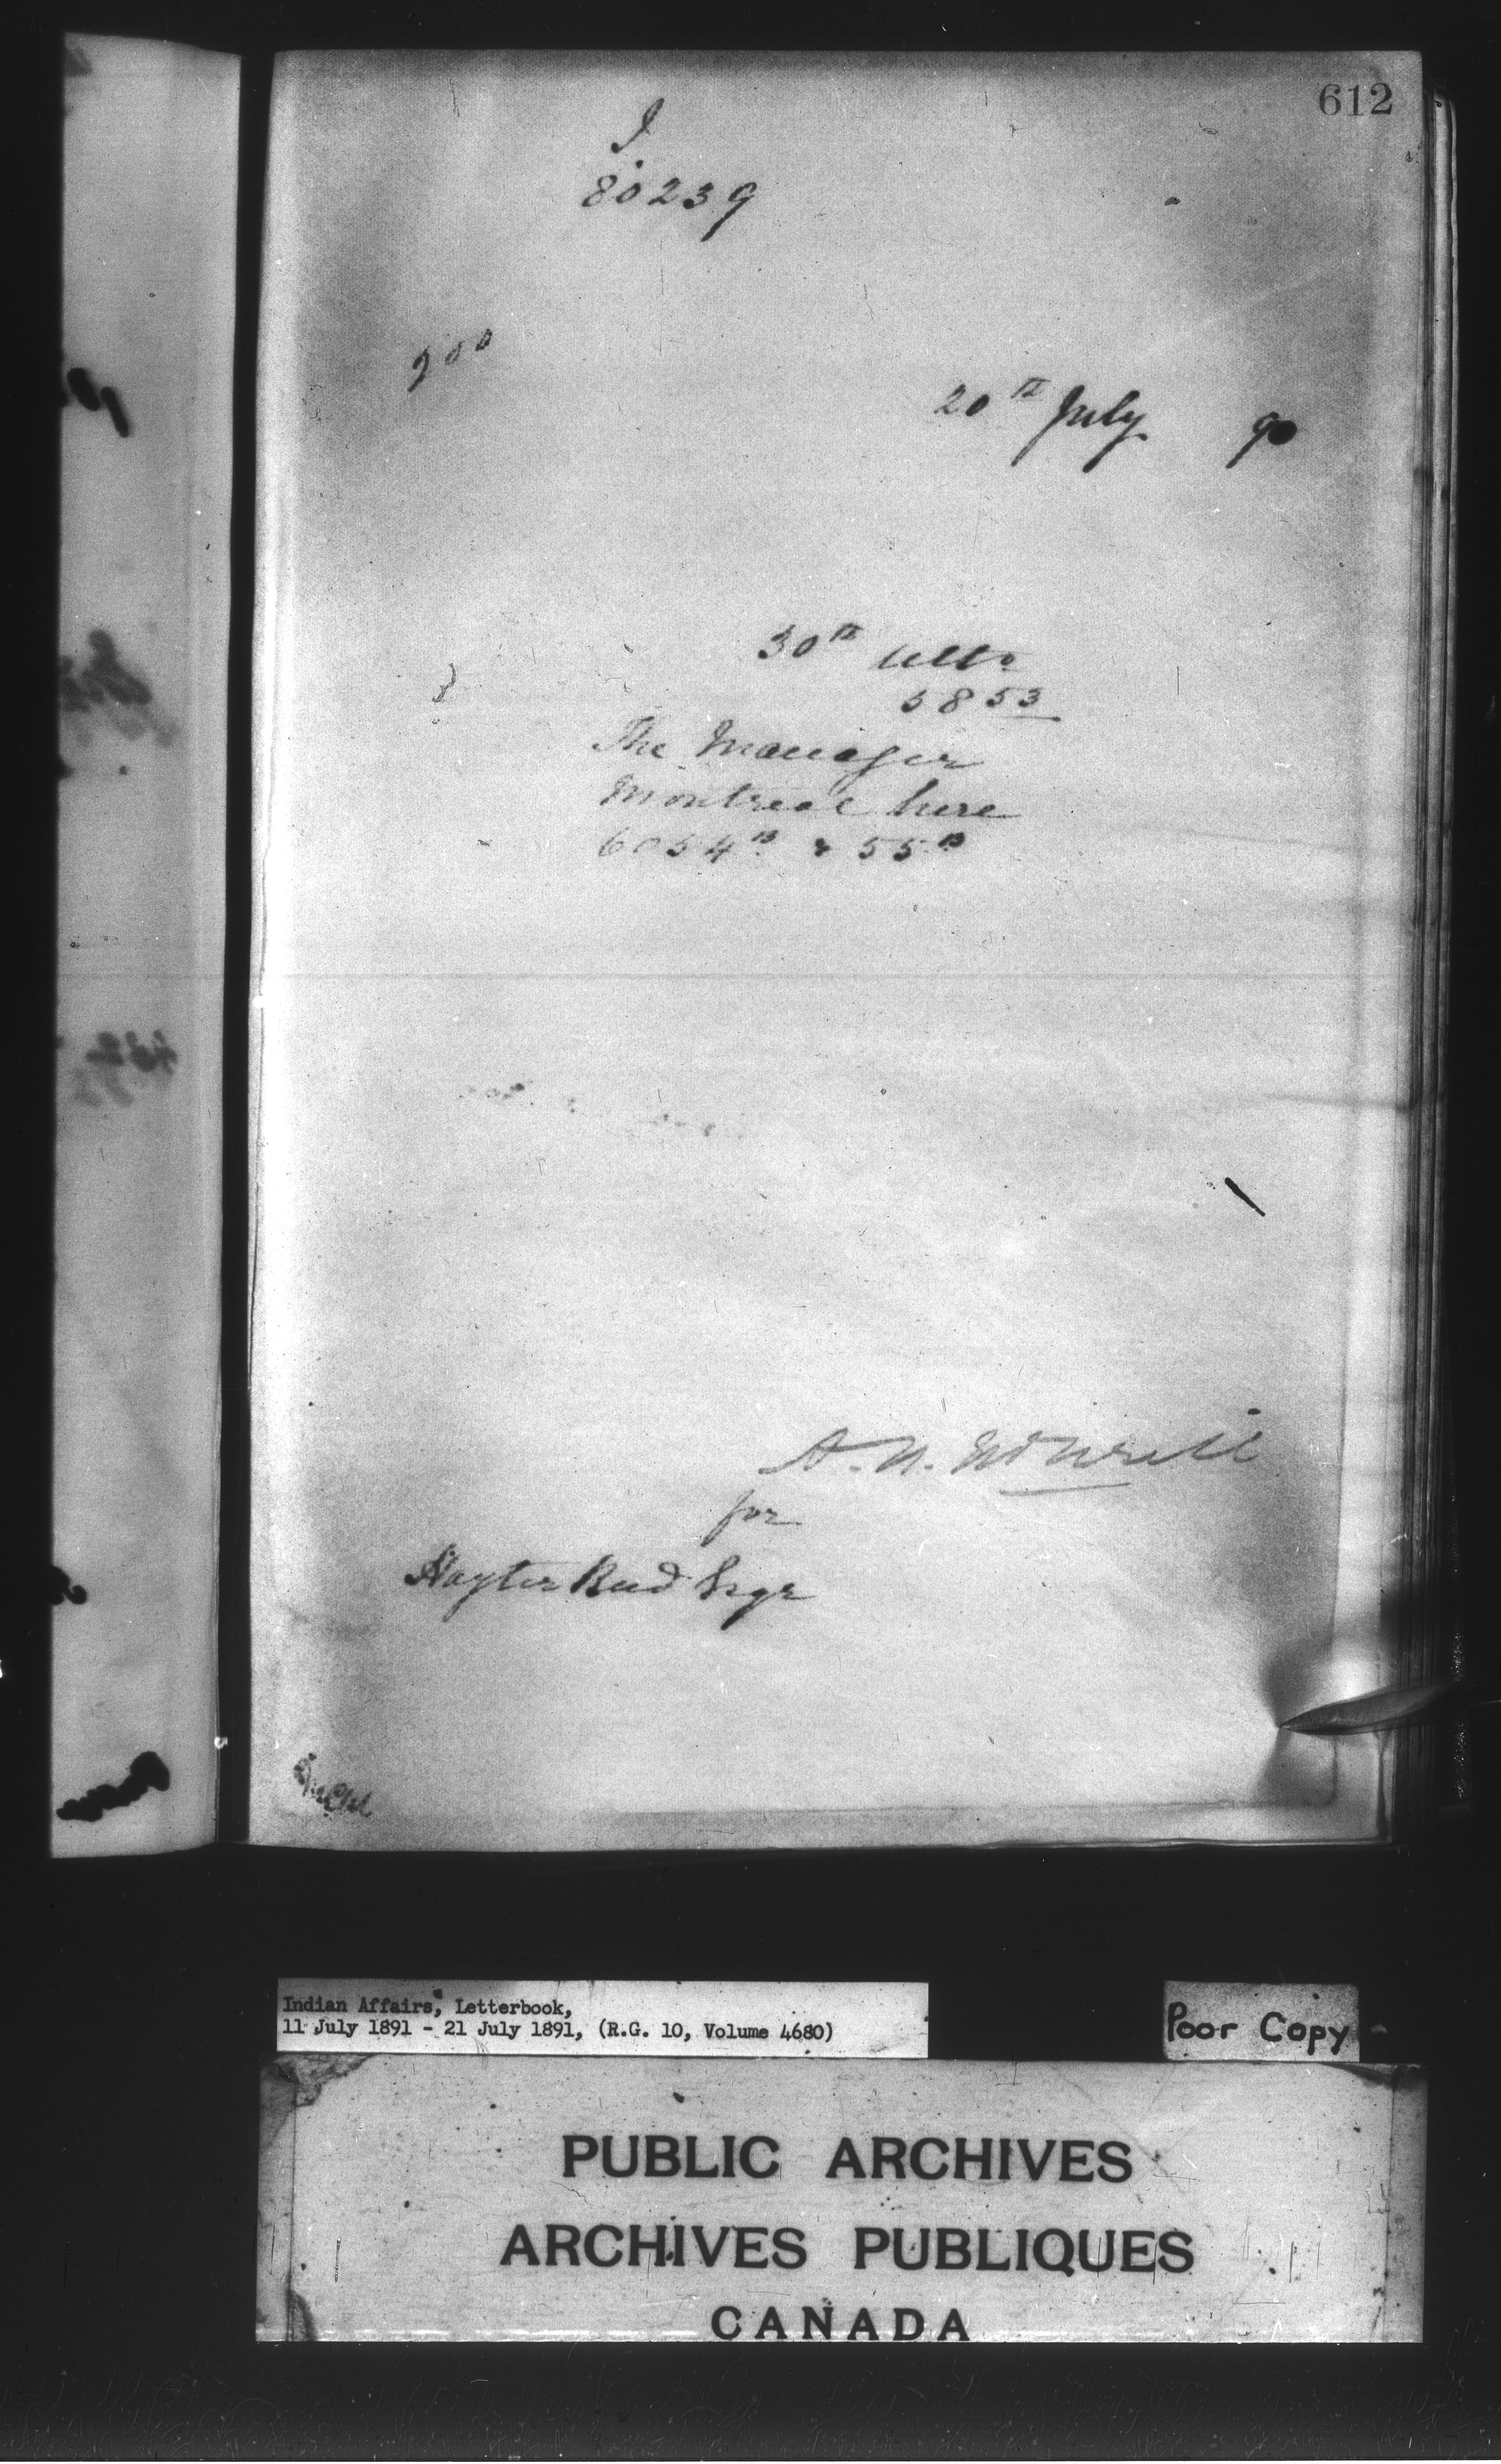 612
I
80239
900
20th July 90
30th ulto
5853
The Manager
Montreal here
6054 B & 55 B
for
Hayter Reed Esqr
Indian Affairs, Letterbook,
11 July 1891 - 21 July 1891, (R.G. 10, Volume 4680)
Poor Copy
PUBLIC ARCHIVES
ARCHIVES PUBLIQUES
CANADA